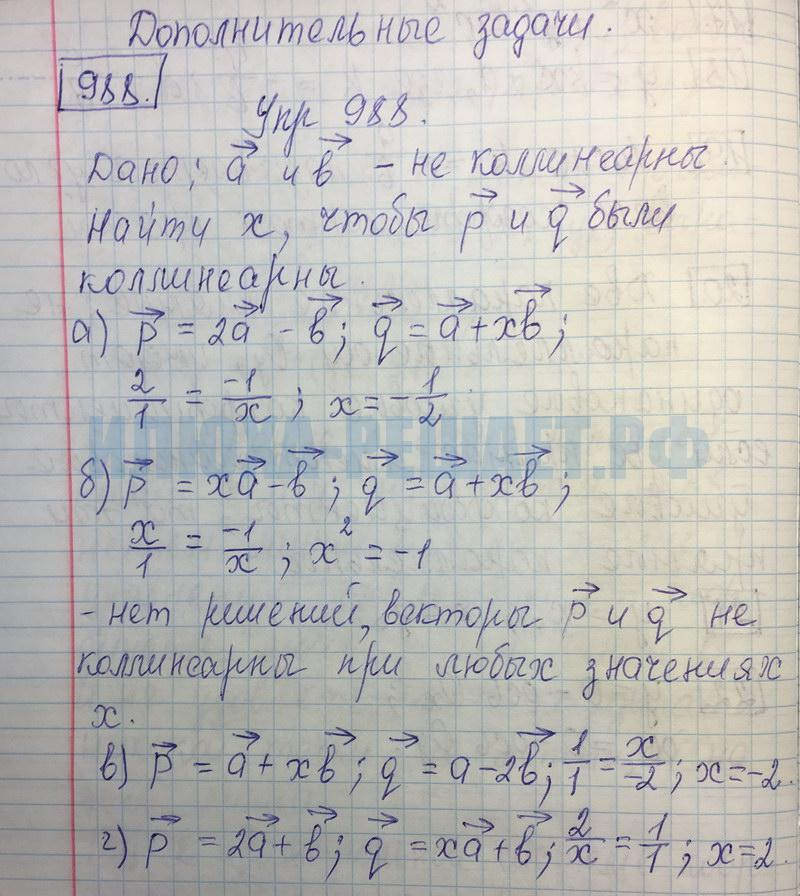 Дополнительные задачи.
988.
Упр 988.
Дано: a⃗ и b⃗ - не коллинеарны.
Найти x, чтобы p⃗ и q⃗ были
коллинеарны.
а) p⃗ = 2a⃗ - b⃗; q⃗ = a⃗ + xb⃗;
2/1 = -1/x; x = -1/2
ИЛЮХА-РЕШАЕТ.РФ
б) p⃗ = xa⃗ - b⃗; q⃗ = a⃗ + xb⃗;
x/1 = -1/x; x² = -1
- нет решений, векторы p⃗ и q⃗ не
коллинеарны при любых значениях
x.
в) p⃗ = a⃗ + xb⃗; q⃗ = a - 2b⃗; 1/1 = x/-2; x = -2.
г) p⃗ = 2a⃗ + b⃗; q⃗ = xa⃗ + b⃗; 2/x = 1/1; x = 2.